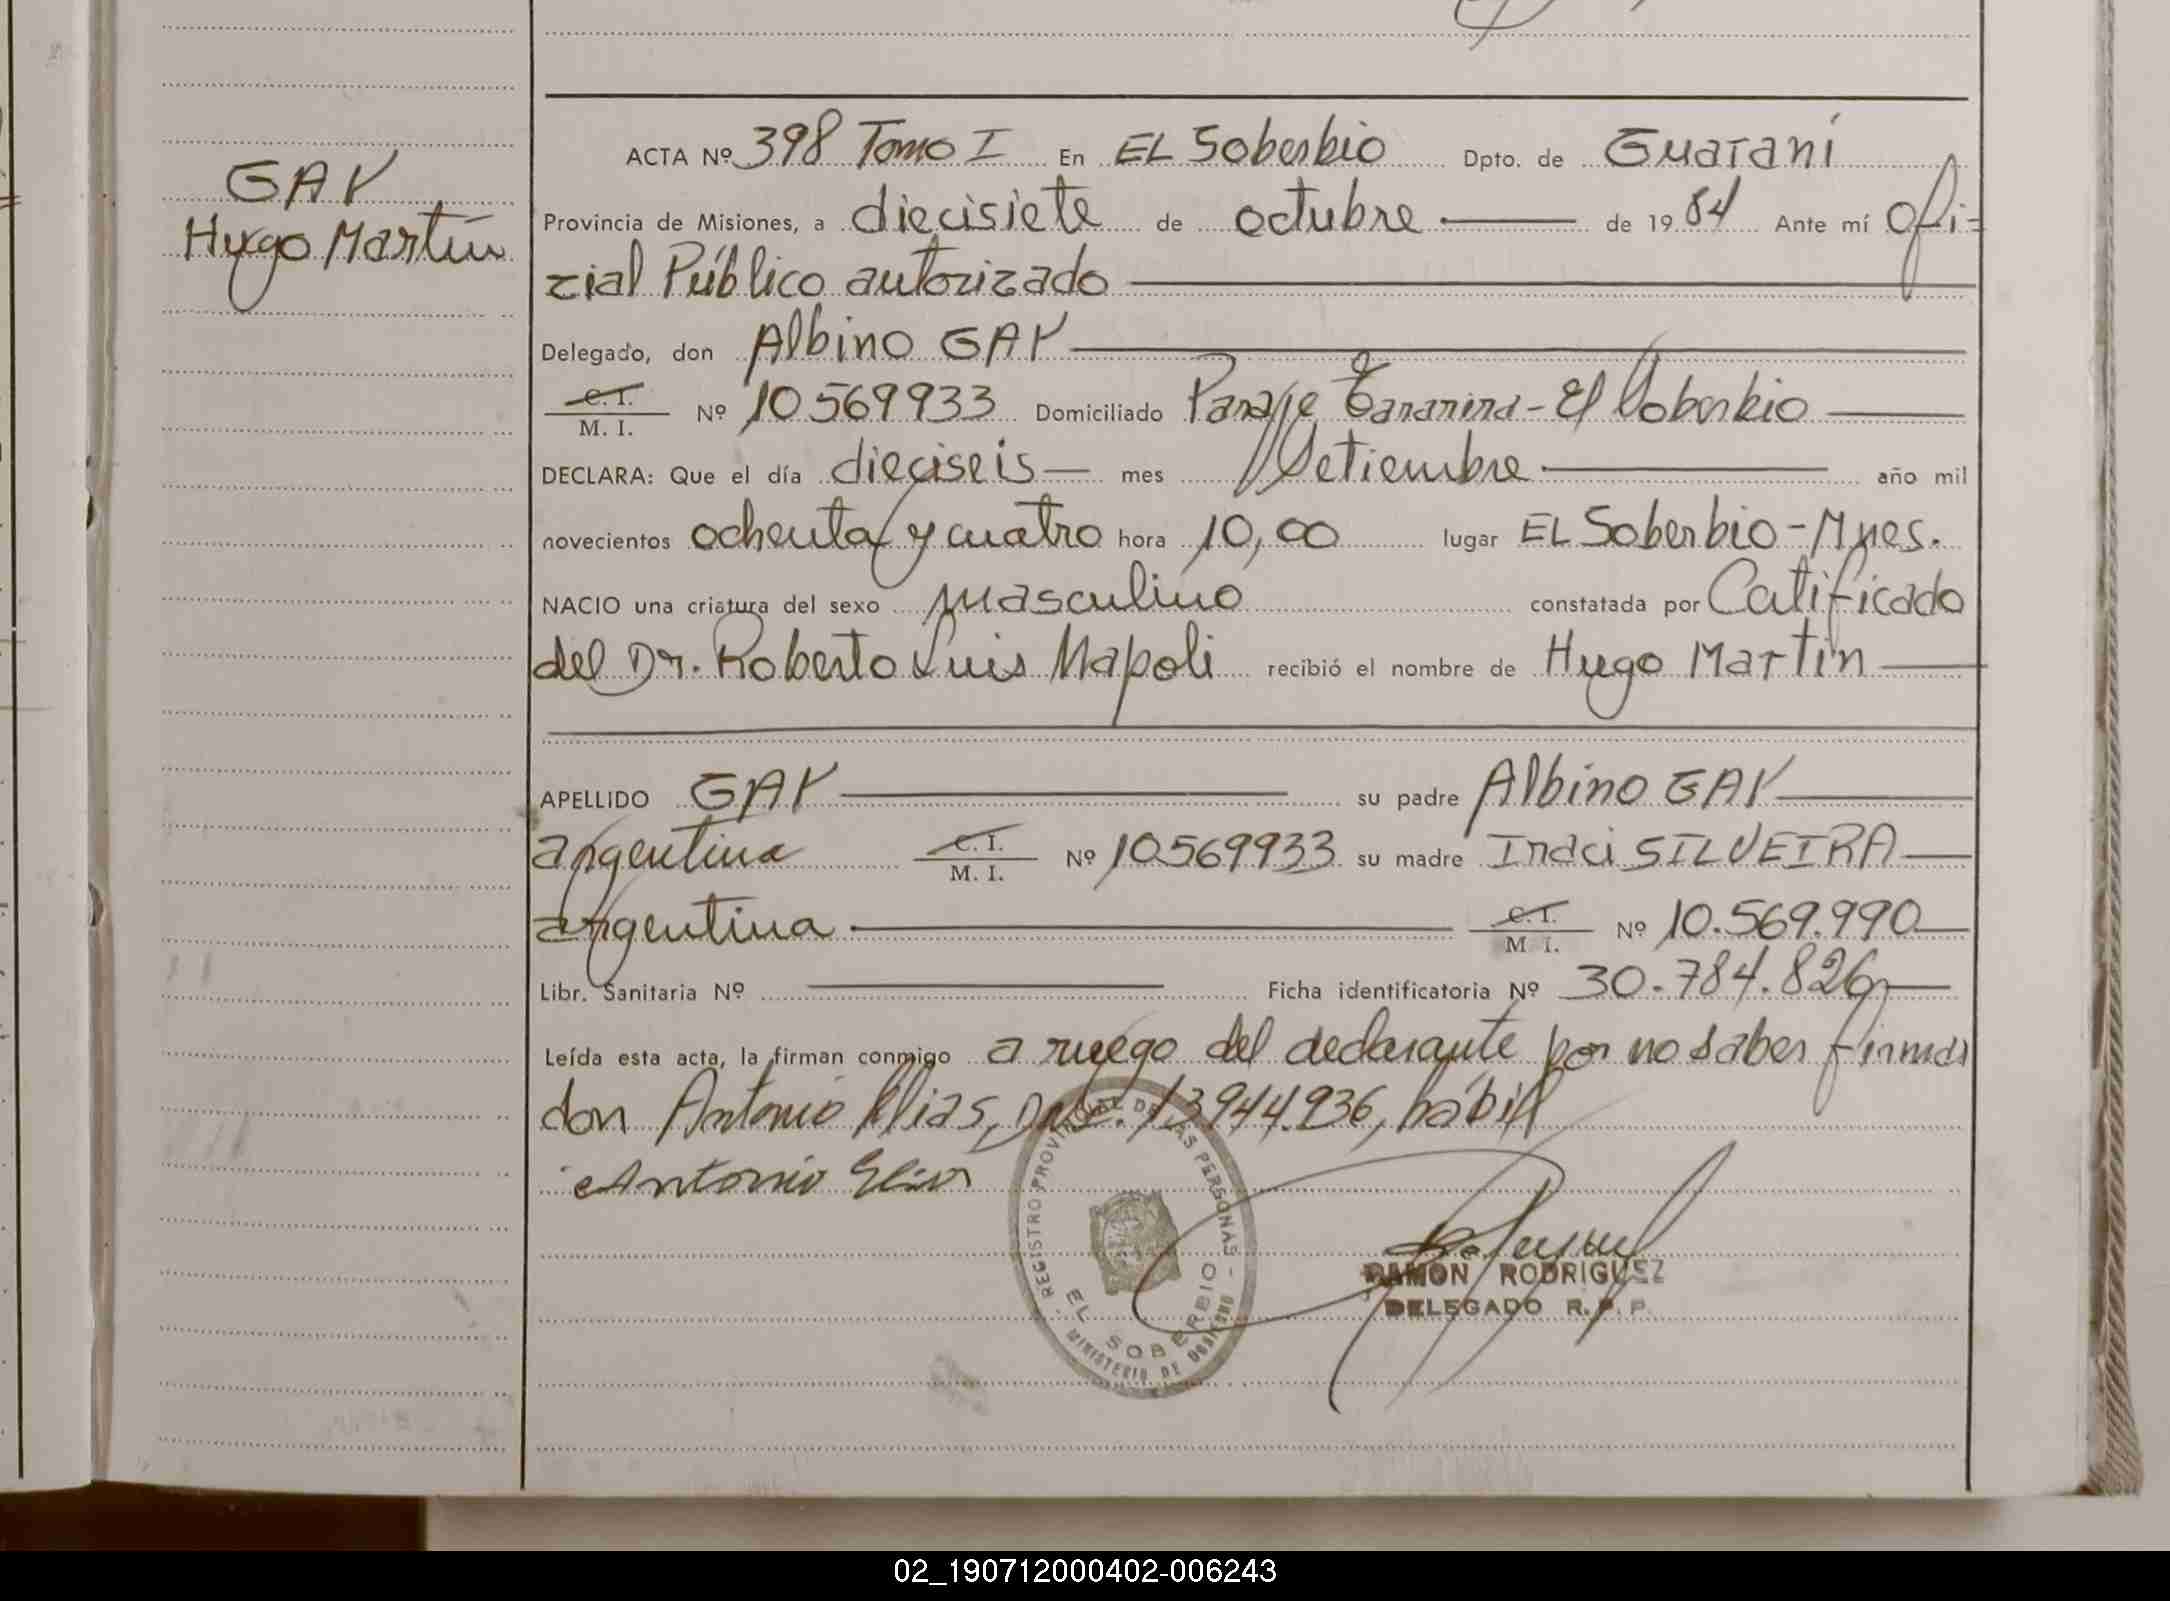 GAY
Hugo Martín
ACTA Nº 398 Tomo I En EL Soberbio Dpto. de Guaraní
Provincia de Misiones, a diecisiete de octubre de 19 84 Ante mí Ofi-
cial Público autorizado
Delegado, don Albino GAY
C. I.
M. I. Nº 10569933 Domiciliado Paraje El Soberbio
DECLARA: Que el día dieciseis mes Setiembre año mil
novecientos ochenta y cuatro hora 10,00 lugar EL Soberbio - Mnes.
NACIO una criatura del sexo masculino constatada por Catificado
del Dr. Roberto Luis Napoli recibió el nombre de Hugo Martín
APELLIDO GAY su padre Albino GAY
argentina C. I. M. I. Nº 10569933 su madre Iraci SILVEIRA
argentina C. I. M. I. Nº 10.569.990
Libr. Sanitaria Nº Ficha identificatoria Nº 30.784.826
Leída esta acta, la firman conmigo a ruego del declarante por no saber firmar
don Antonio Elias, DNI. 13944.936, hábil
Antonio Elias
REGISTRO PROVINCIAL DE LAS PERSONAS -
EL SOBERBIO
MINISTERIO DE GOBIERNO
RAMON RODRIGUEZ
DELEGADO R. P. P.
02_190712000402-006243